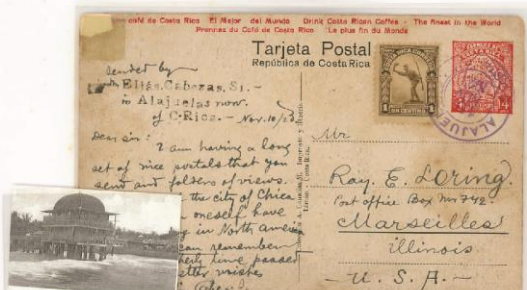 café de Costa Rica El Mejor del Mundo Drink Costa Rican Coffee - The finest in the World
Prenez du Café de Costa Rica Le plus fin du Monde
Tarjeta Postal
República de Costa Rica
Sended by
Elías Cabezas, Sr. -
in Alajuela now.
of C. Rica. - Nov. 10/23
Dear sir: I am having a long
set of nice postals that you
send and folders of views.
the city of Chica
oneself have
in North America
can remember
time passed
wishes
1
4
ALAJUE
Mr.
Ray. E. Loring.
Post office Box Nr 342.
Marseilles
illinois
- U. S. A. -